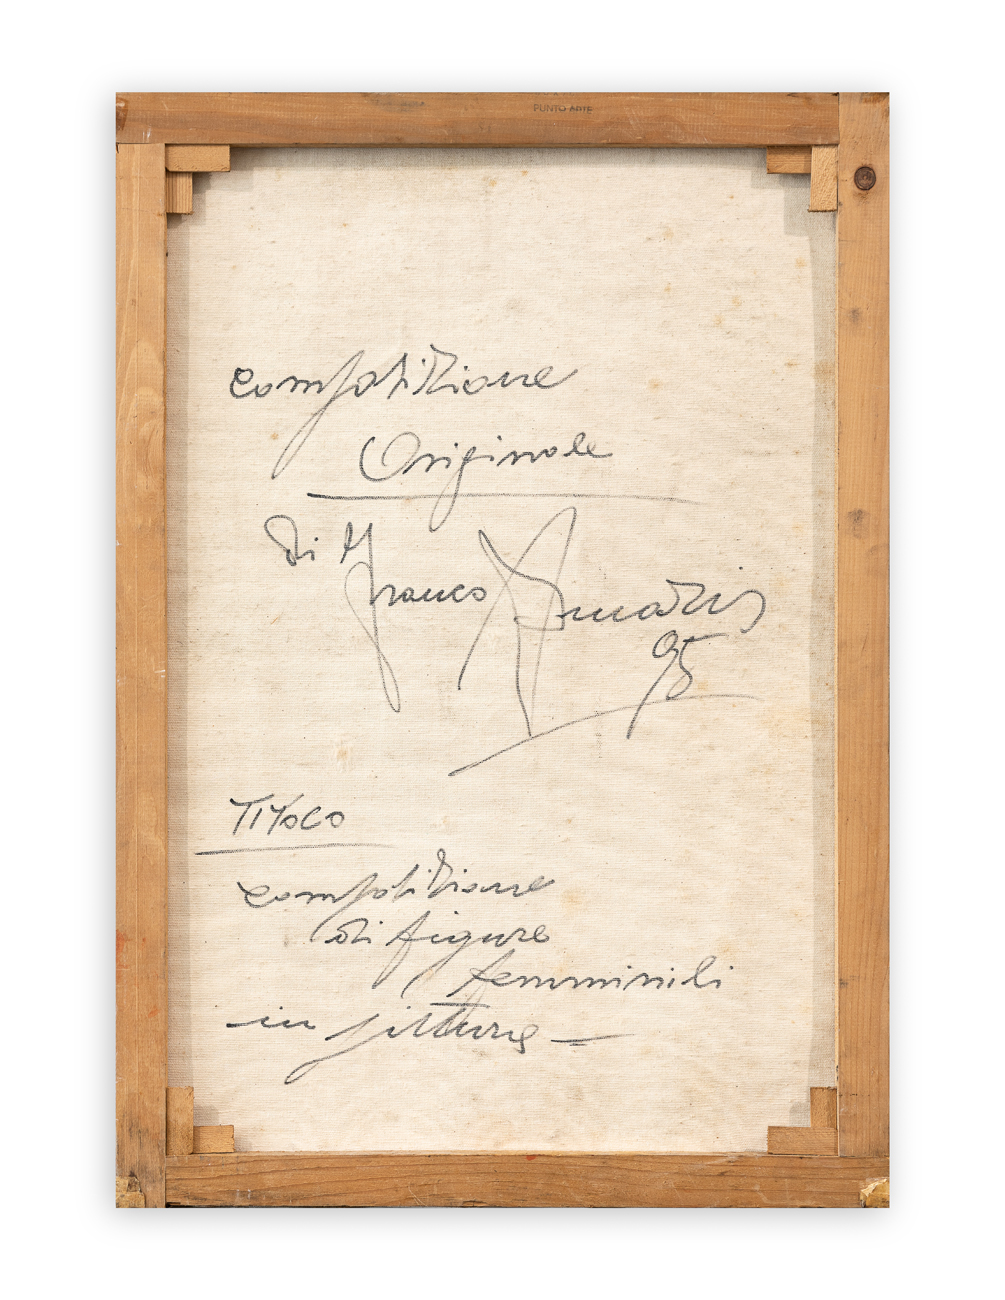 PUNTO ARTE
composizione
Originale
di Franco
95
TITOLO
composizione
di figure
femminili
in pittura